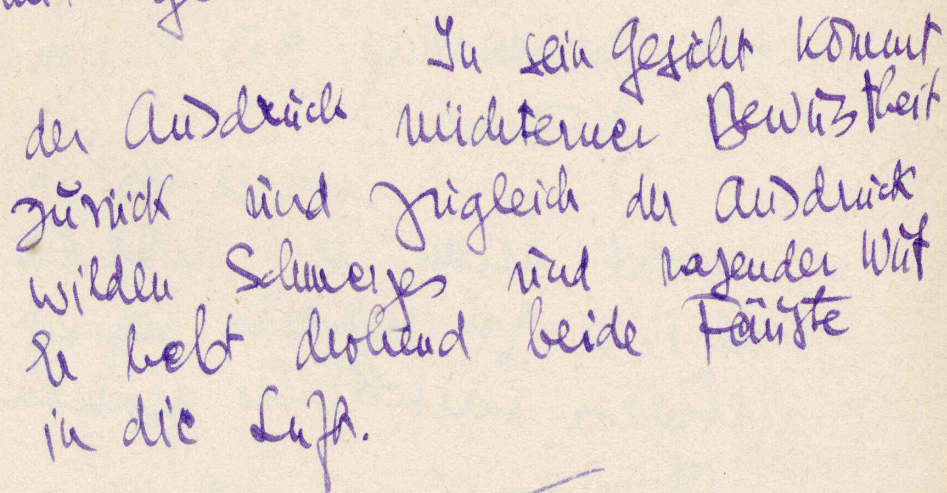 In sein Gesicht kommt
der Ausdruck nüchterner Bewustheit
zurück und zugleich der Ausdruck
wilden Schmerzes und rasender Wut
Er hebt drohend beide Fäuste
in die Luft.